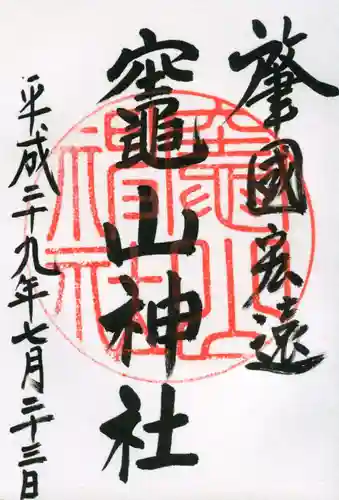 肇國宏遠
竈山神社
平成二十九年七月二十三日
竈山神社